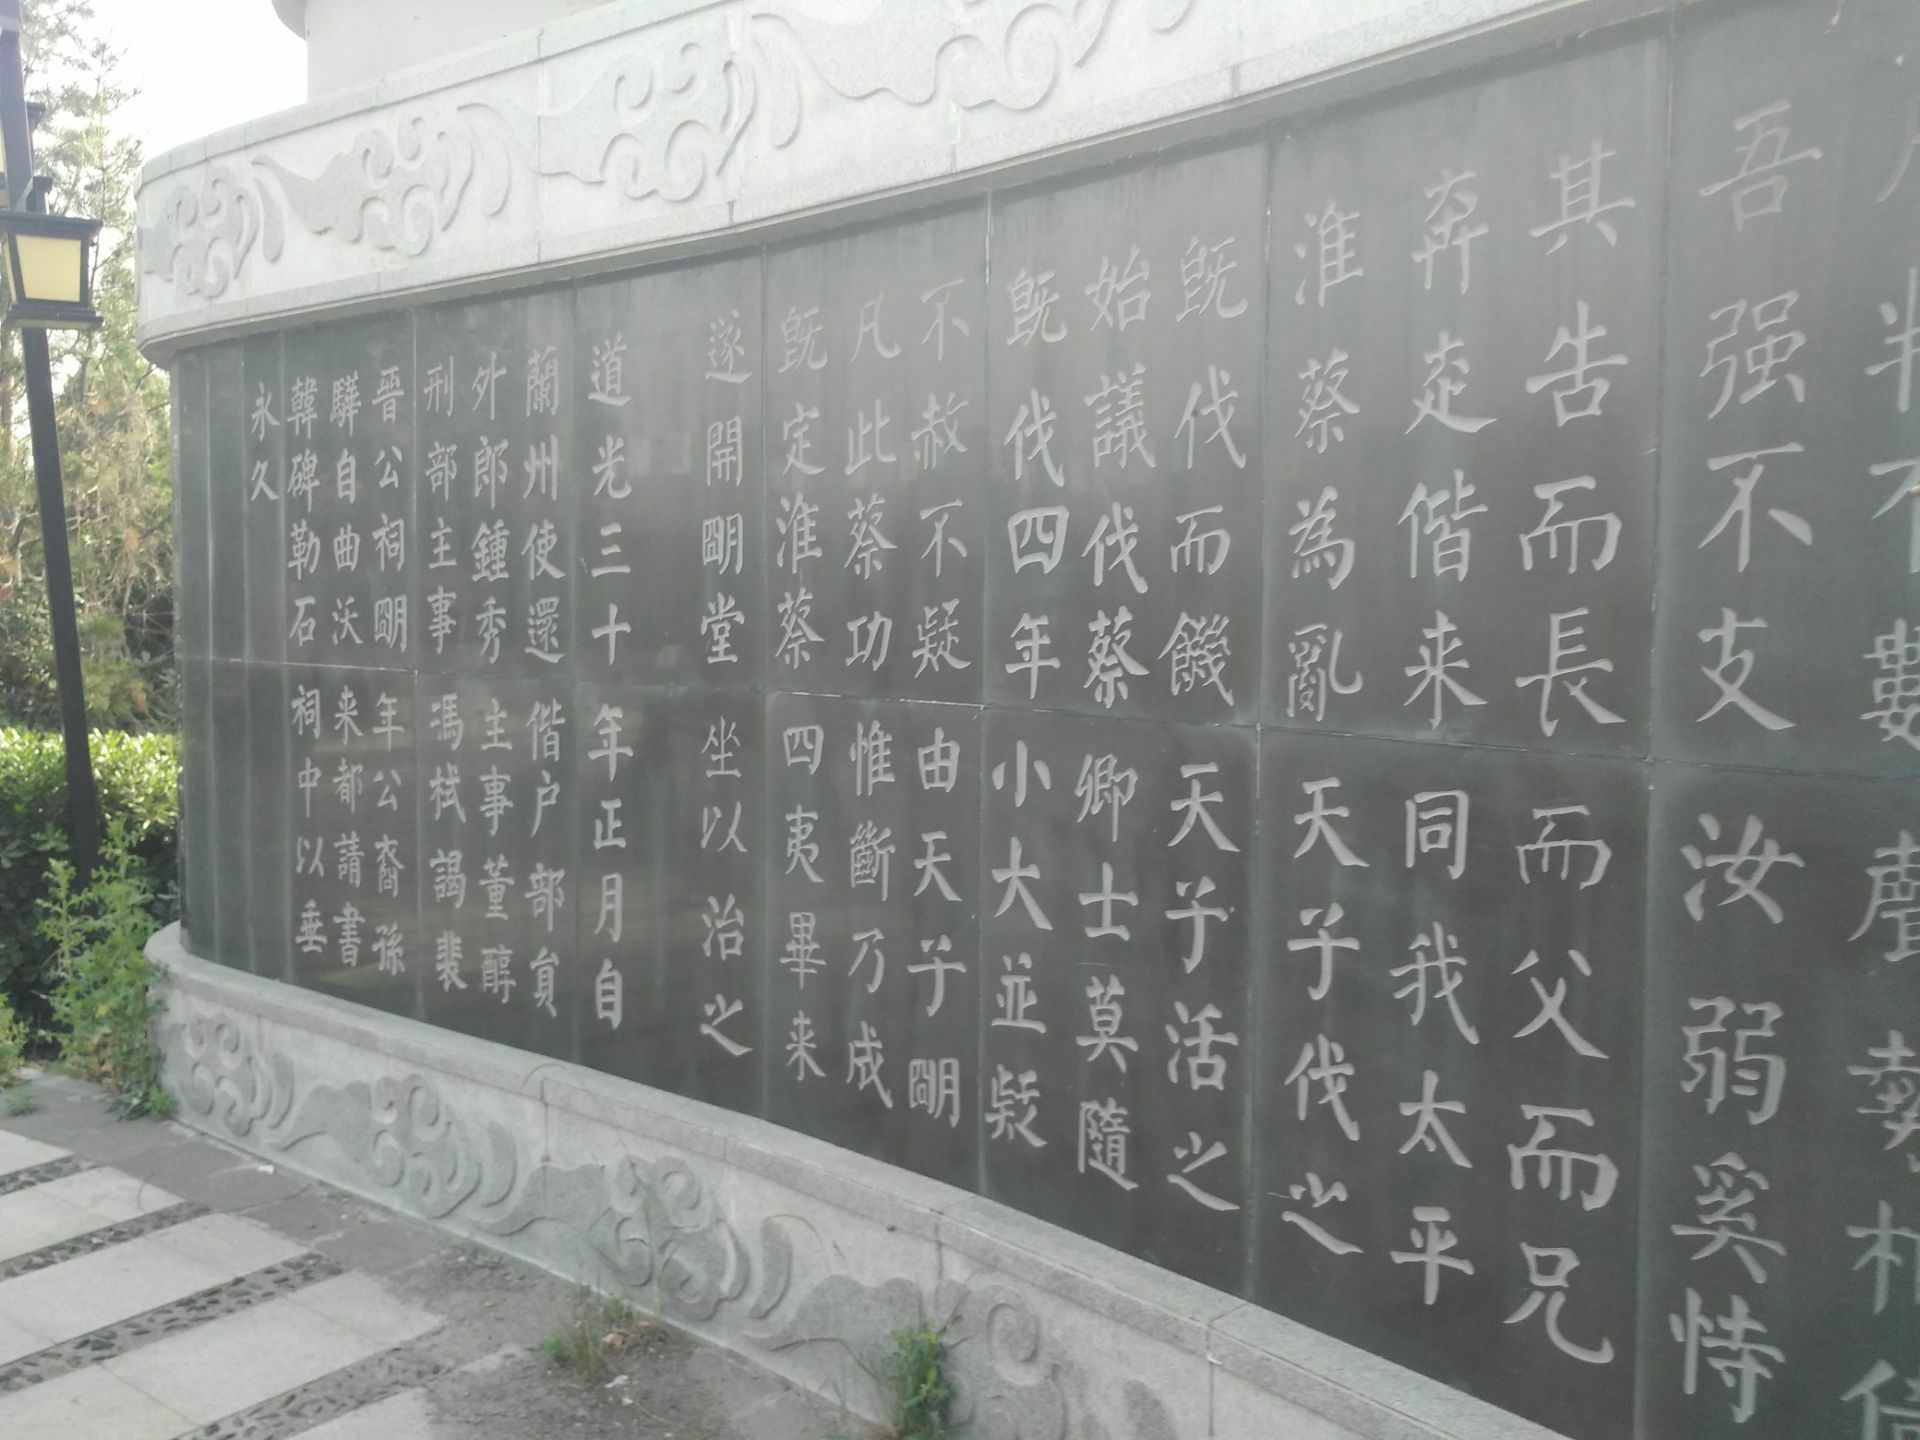 數聲勢相
吾强不支汝弱奚恃
其告而長而父而兄
奔走偕来同我太平
淮蔡為亂天子伐之
既伐而饑天子活之
始議伐蔡卿士莫隨
既伐四年小大並疑
不赦不疑由天子朙
凡此蔡功惟斷乃成
既定淮蔡四夷畢来
遂開朙堂坐以治之
道光三十年正月自
蘭州使還偕户部員
外郎鍾秀主事董醇
刑部主事馮栻謁裴
晉公祠朙年公裔孫
驊自曲沃来都請書
韓碑勒石祠中以垂
永久